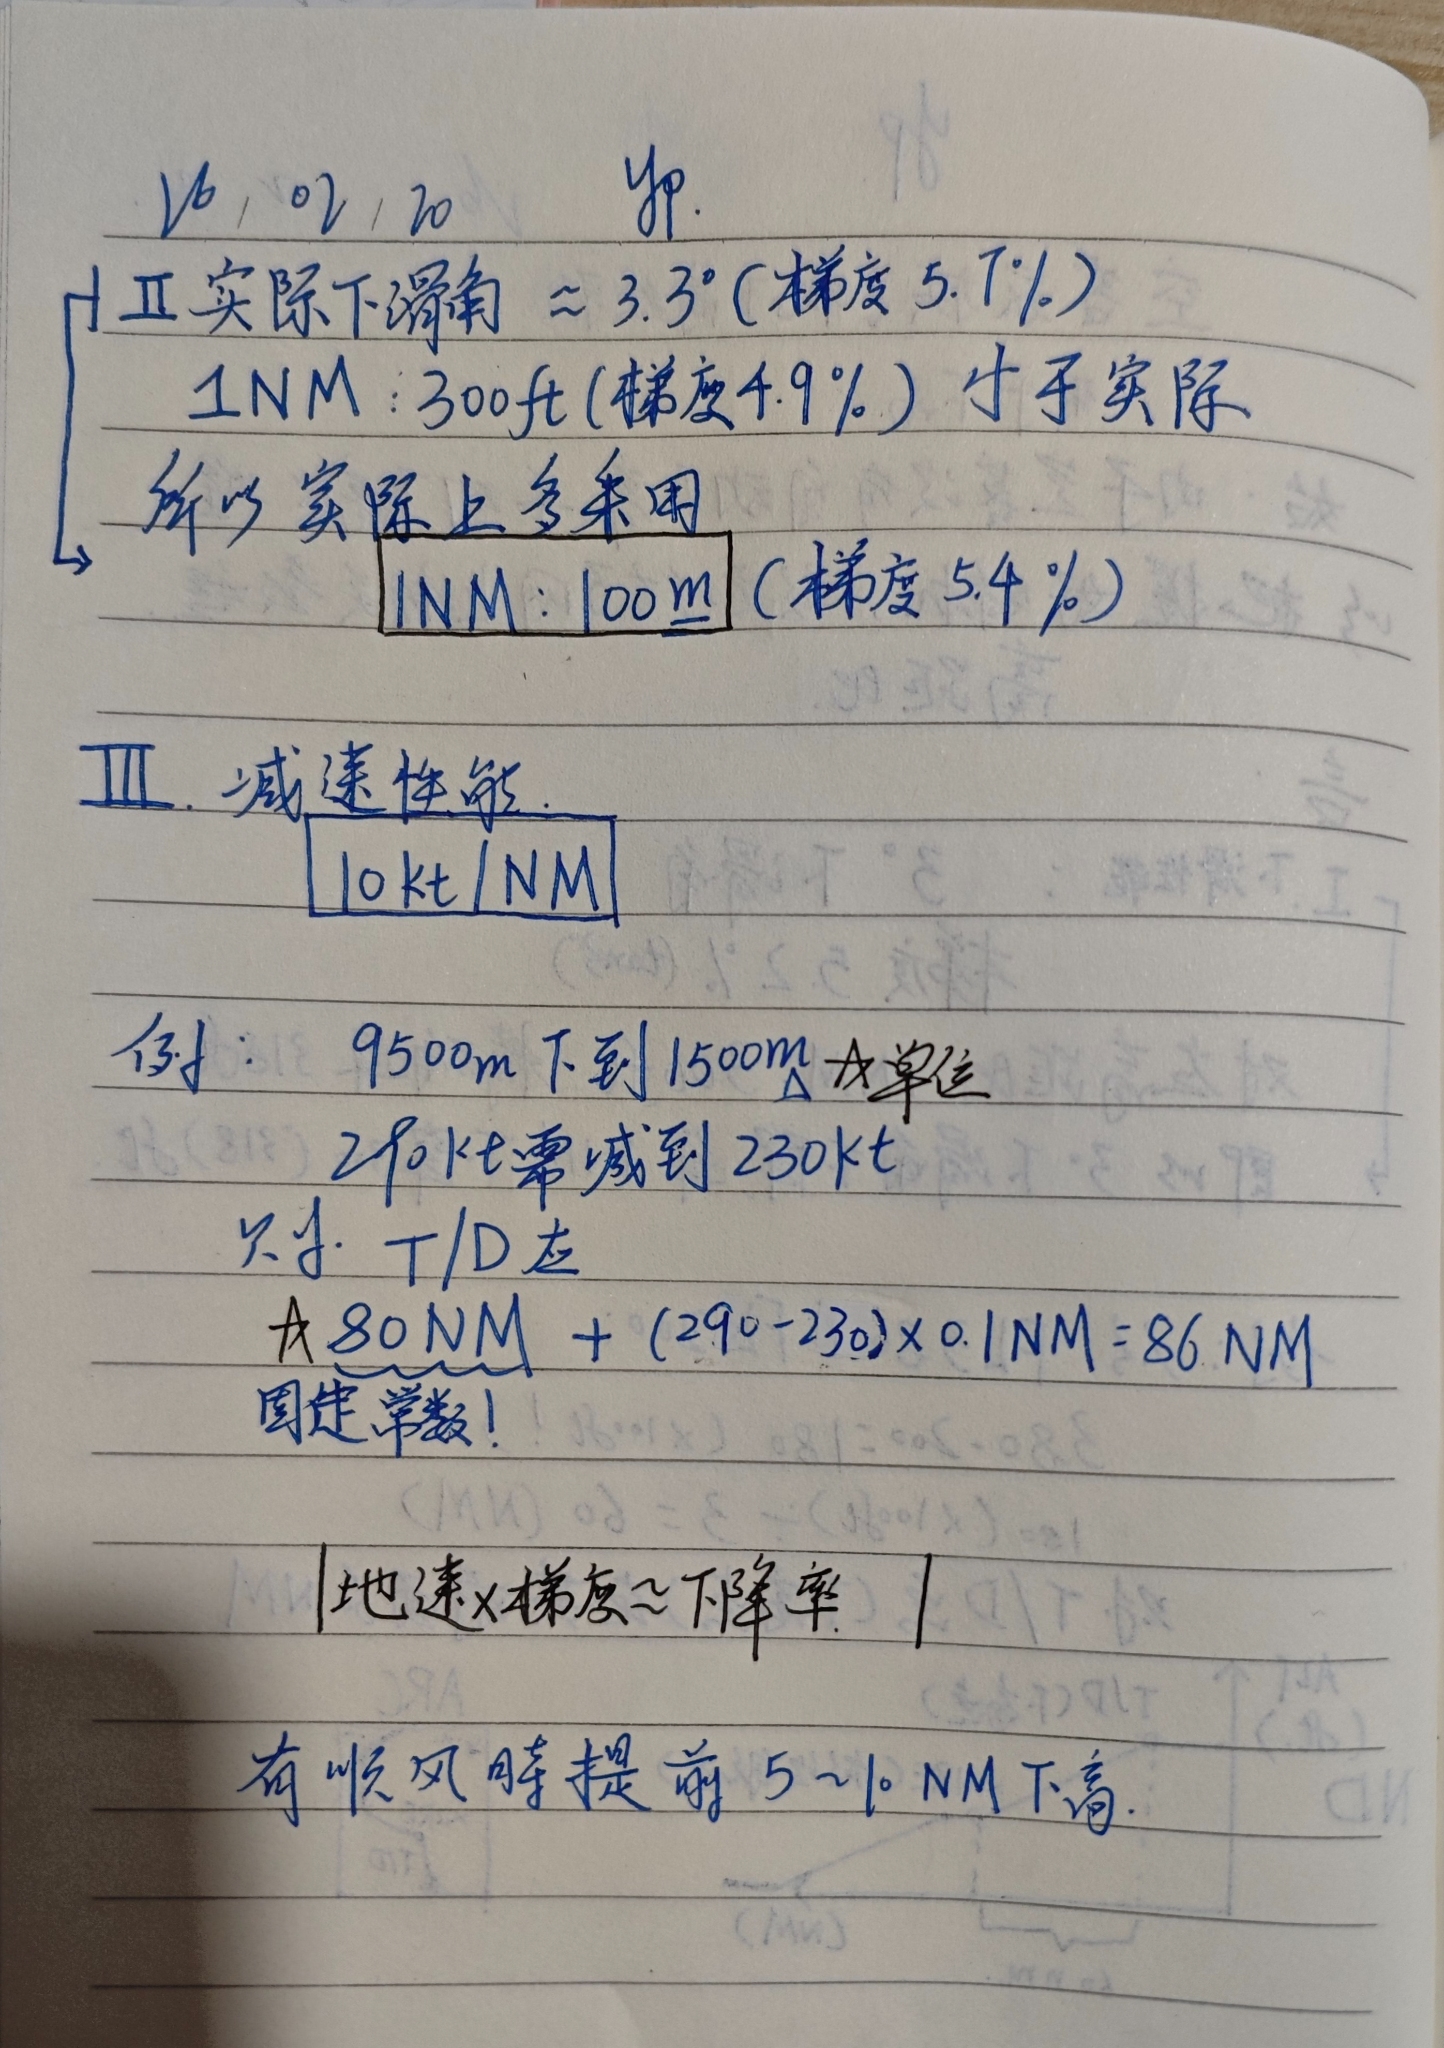 26, 02, 20 yp.
II 实际下滑角 ≈ 3.3° (梯度 5.7%)
1NM : 300ft (梯度4.9%) 小于实际
所以实际上多采用
1NM : 100m (梯度 5.4%)
III. 减速性能.
10kt/NM
例: 9500m 下到 1500m ☆单位
290kt需减到230kt
则. T/D 在
☆ 80NM + (290-230)×0.1NM=86 NM
固定常数!
|地速×梯度≈下降率|
有顺风時提前 5~10 NM下高.